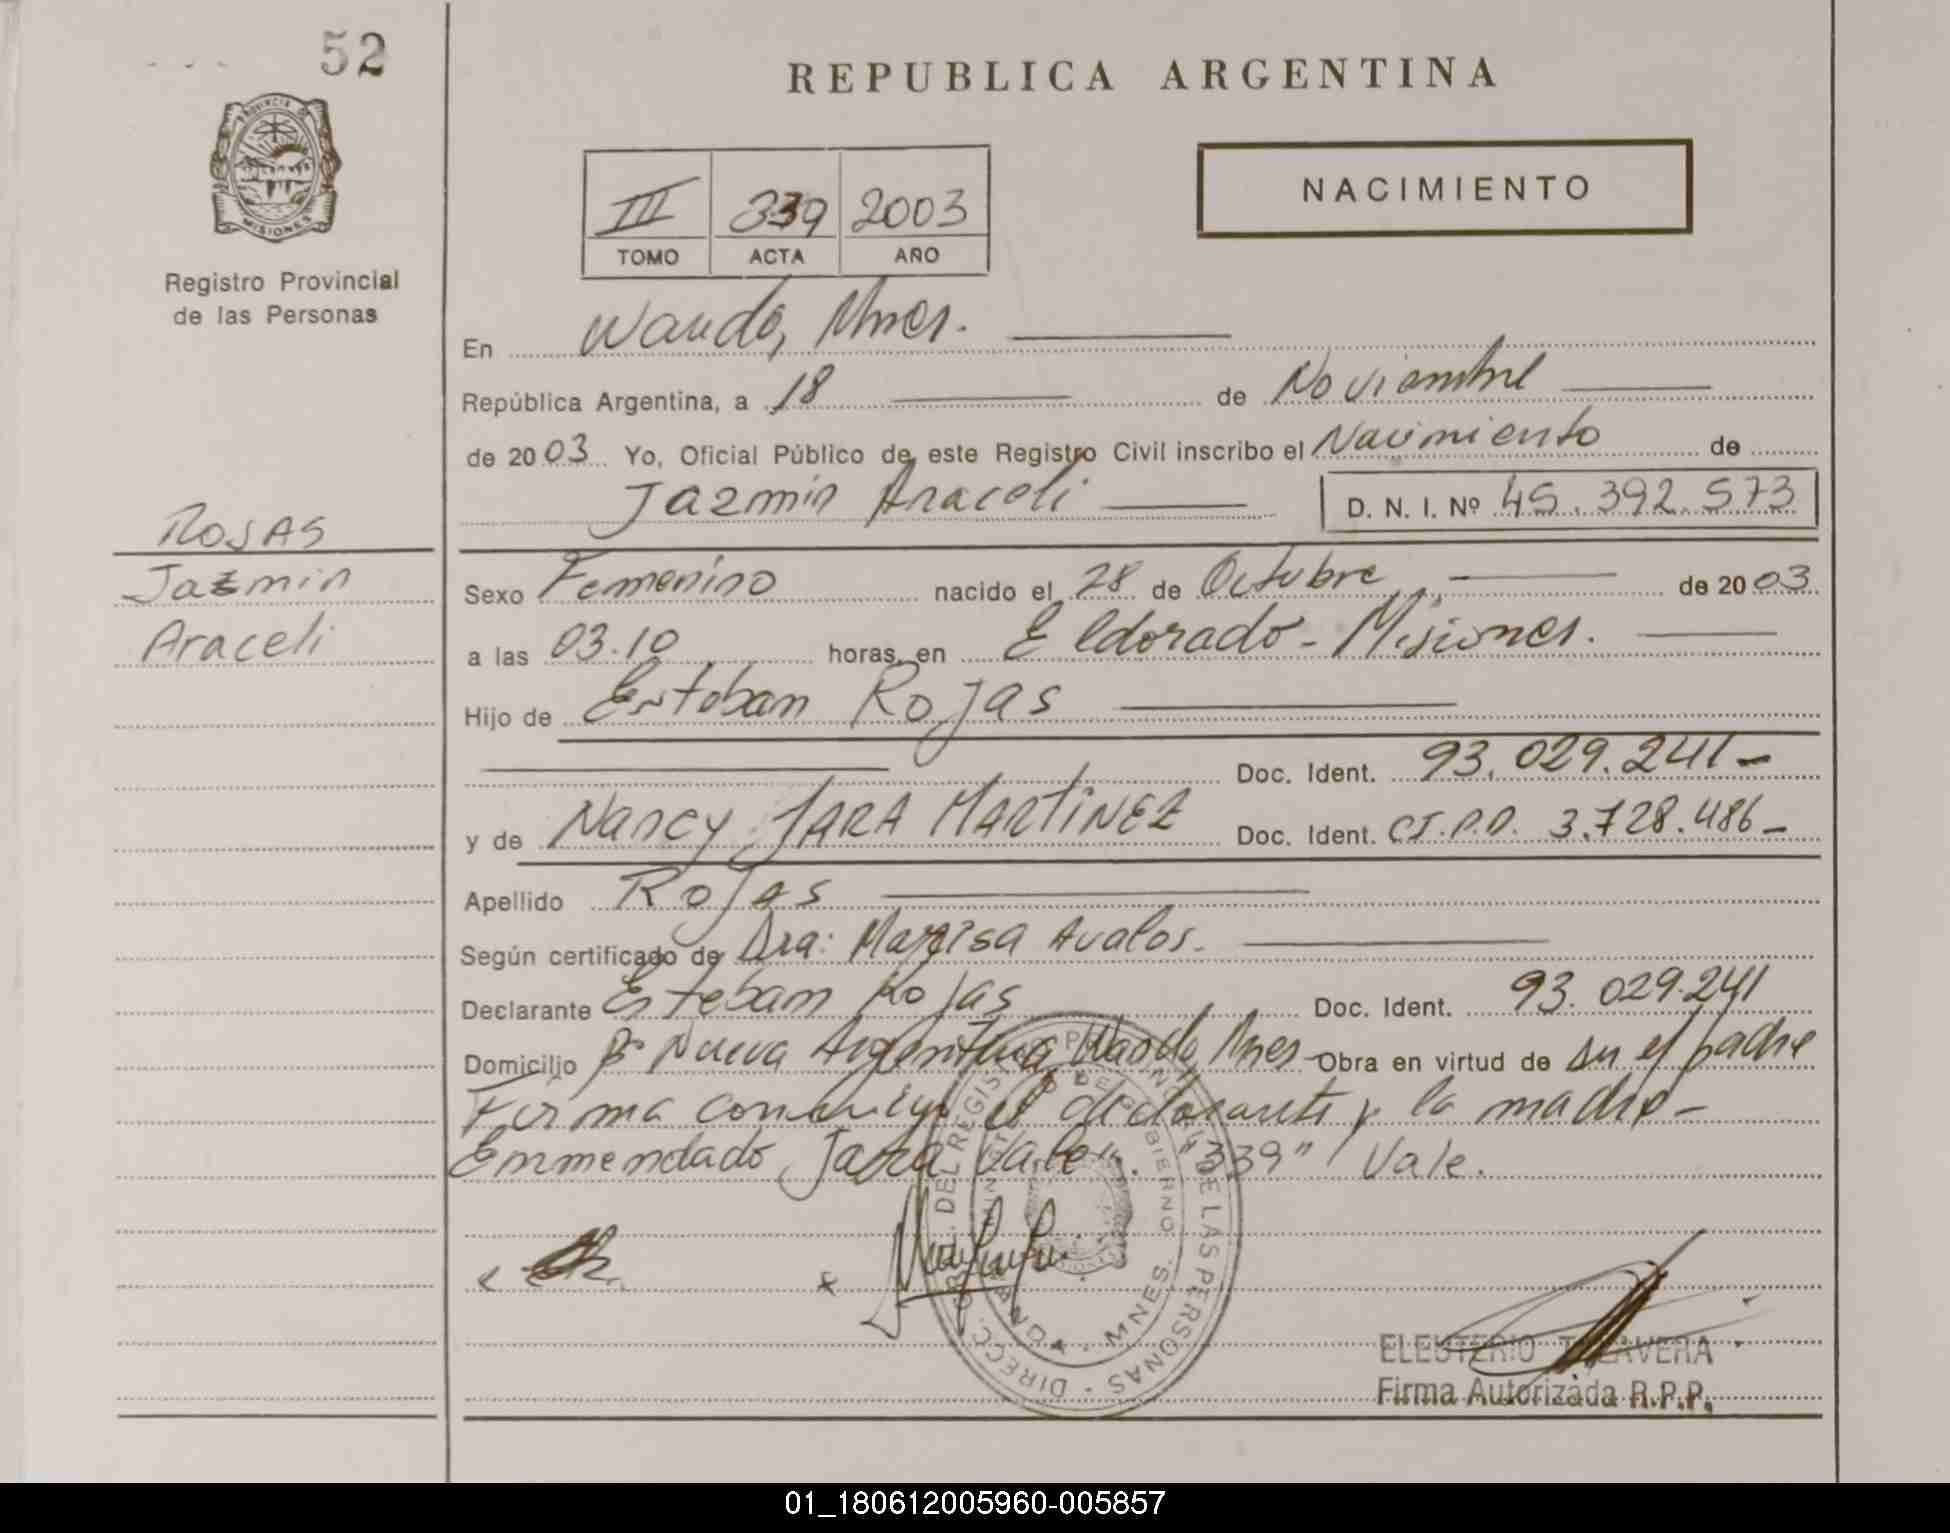 52
REPUBLICA ARGENTINA
PROVINCIA DE
MISIONES
Registro Provincial
de las Personas
NACIMIENTO
III 339 2003
TOMO ACTA AÑO
En Wanda, Mnes.
República Argentina, a 18 de Noviembre
de 2003 Yo, Oficial Público de este Registro Civil inscribo el Nacimiento de
Jazmín Araceli D. N. I. Nº 45.392.573
ROJAS
Jazmin
Araceli
Sexo Femenino nacido el 28 de Octubre de 2003
a las 03.10 horas, en Eldorado - Misiones.
Hijo de Esteban Rojas
Doc. Ident. 93.029.241-
y de Nancy JARA MARTINEZ Doc. Ident. CI.P.P. 3.728.486-
Apellido Rojas
Según certificado de Dra: Marisa Avalos.
Declarante Esteban Rojas Doc. Ident. 93.029.241
Domicilio Bº Nueva Argentina, Wanda Mnes- Obra en virtud de su el padre
Firma conmigo el declarante y la madre-
Enmendado Jara Vale". "339" Vale.
DIRECC. GRAL. DEL REGISTRO PROVINCIAL DE LAS PERSONAS
MINIST. DE GOBIERNO
WANDA - MNES.
ELEUTERIO TALAVERA
Firma Autorizada R.P.P.
01_180612005960-005857